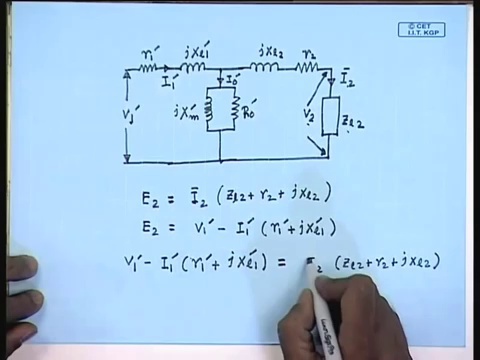 © CET
I.I.T. KGP
r₁′ jxℓ₁′ jxℓ₂ r₂
I₁′ I₀′ Ī₂
V₁′ jXm′ R₀′ V₂ Zℓ₂
E₂ = Ī₂ (Zℓ₂ + r₂ + jxℓ₂)
E₂ = V₁′ − I₁′ (r₁′ + jxℓ₁′)
V₁′ − I₁′ (r₁′ + jxℓ₁′) = I₂ (Zℓ₂ + r₂ + jxℓ₂)